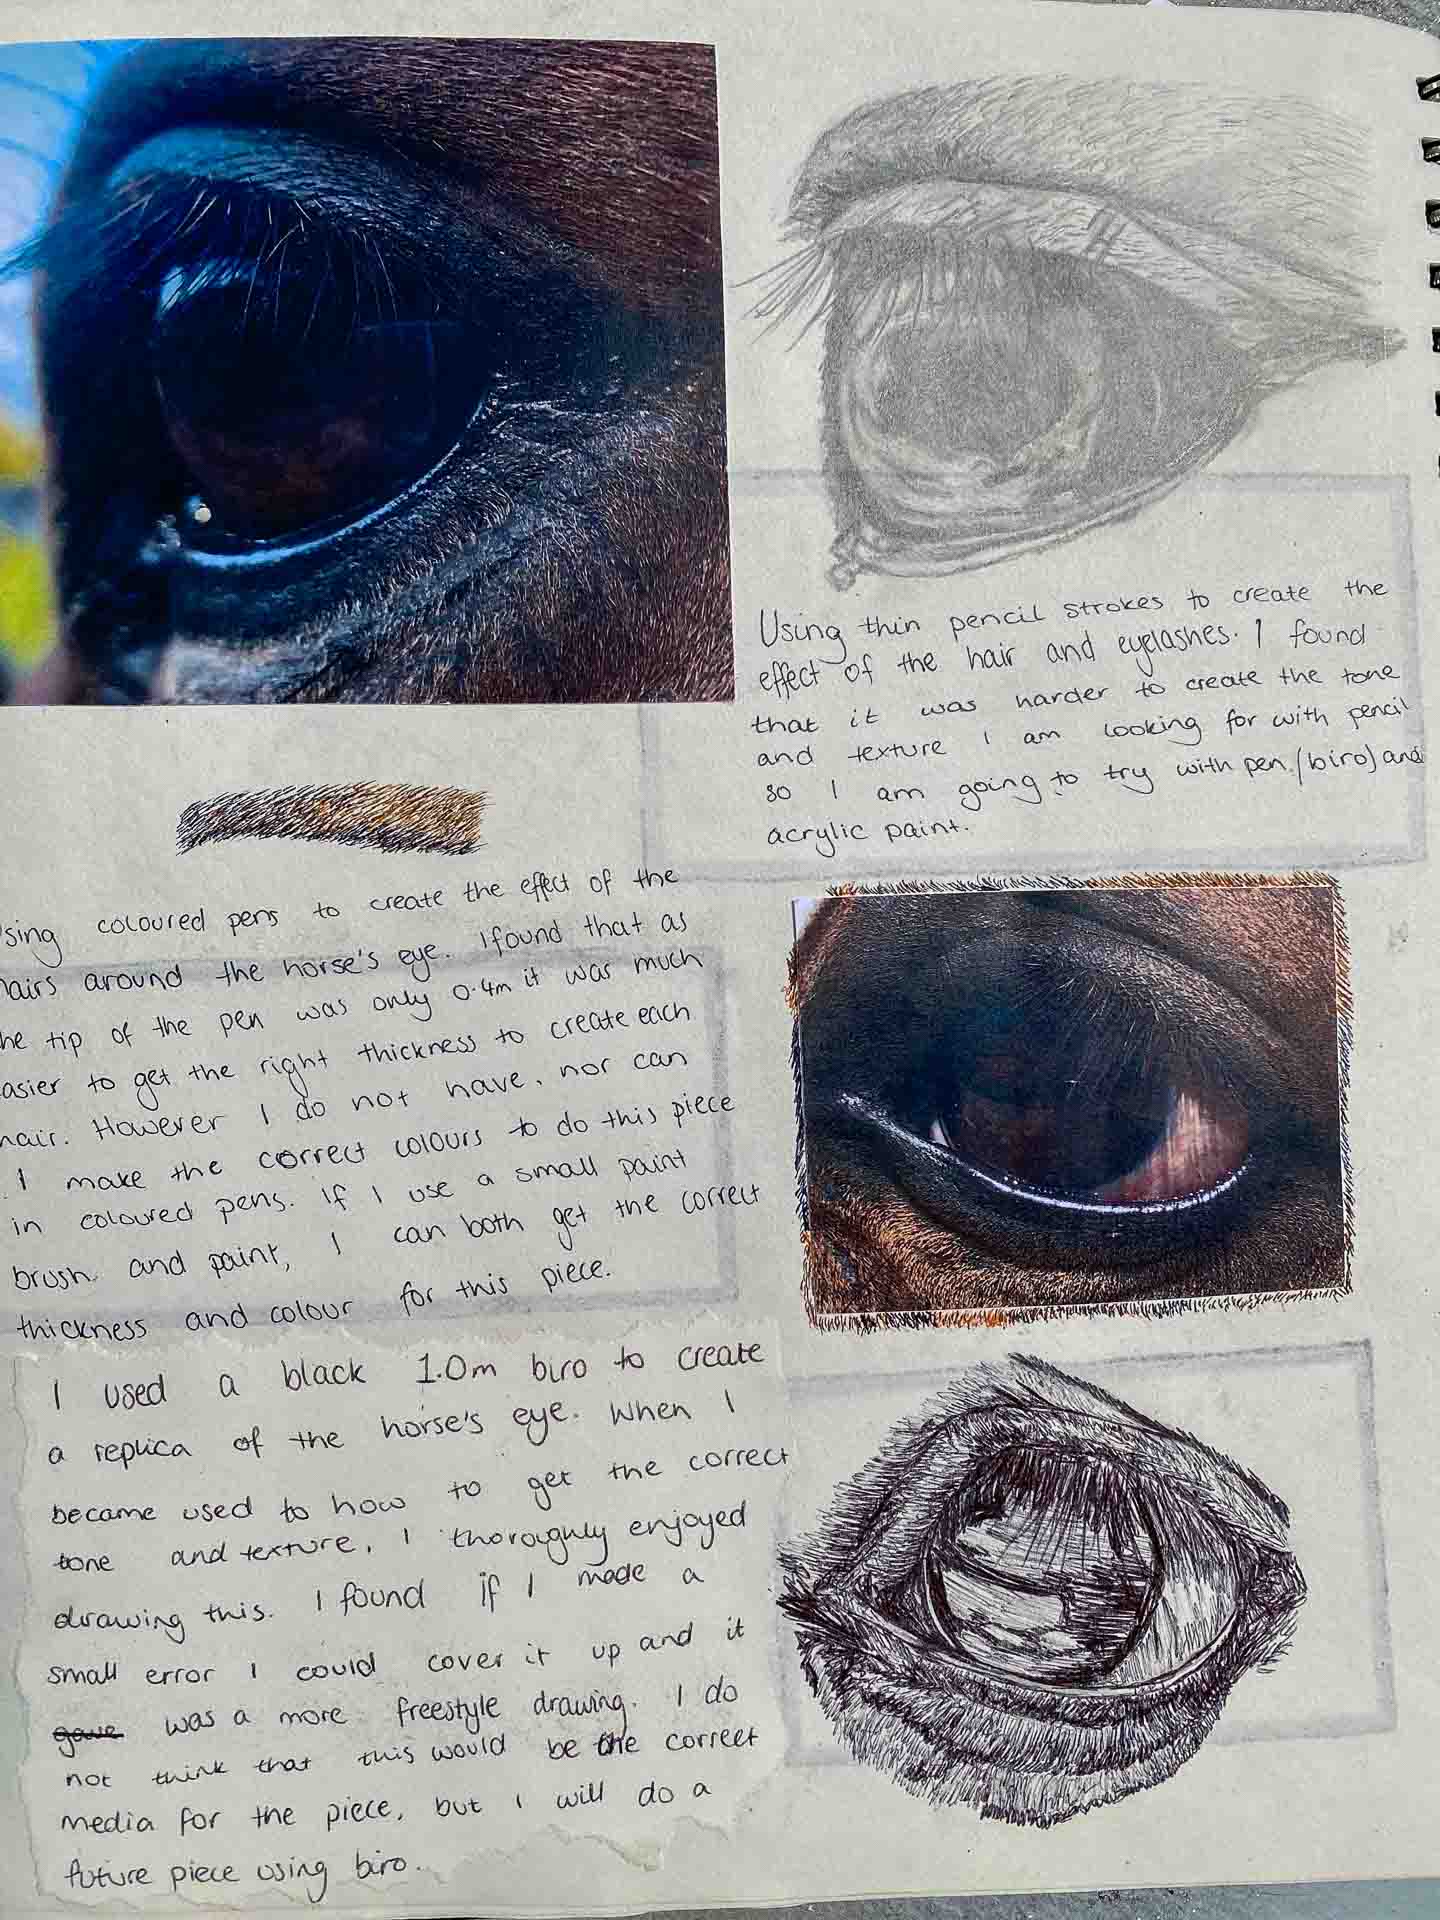 Using thin pencil strokes to create the
effect of the hair and eyelashes. I found
that it was harder to create the tone
and texture I am looking for with pencil
so I am going to try with pen (biro) and
acrylic paint.
sing coloured pens to create the effect of the
hairs around the horse's eye. I found that as
he tip of the pen was only 0.4m it was much
asier to get the right thickness to create each
hair. However I do not have, nor can
I make the correct colours to do this piece
in coloured pens. If I use a small paint
brush and paint, I can both get the correct
thickness and colour for this piece.
I used a black 1.0m biro to create
a replica of the horse's eye. When I
became used to how to get the correct
tone and texture, I thoroughly enjoyed
drawing this. I found if I made a
small error I could cover it up and it
gave was a more freestyle drawing. I do
not think that this would be the correct
media for the piece, but I will do a
future piece using biro.